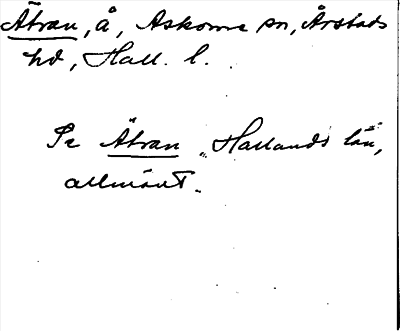 Ätran, å, Askome sn, Årstads
hd, Hall. l.
Se Ätran, Hallands län,
allmänt.